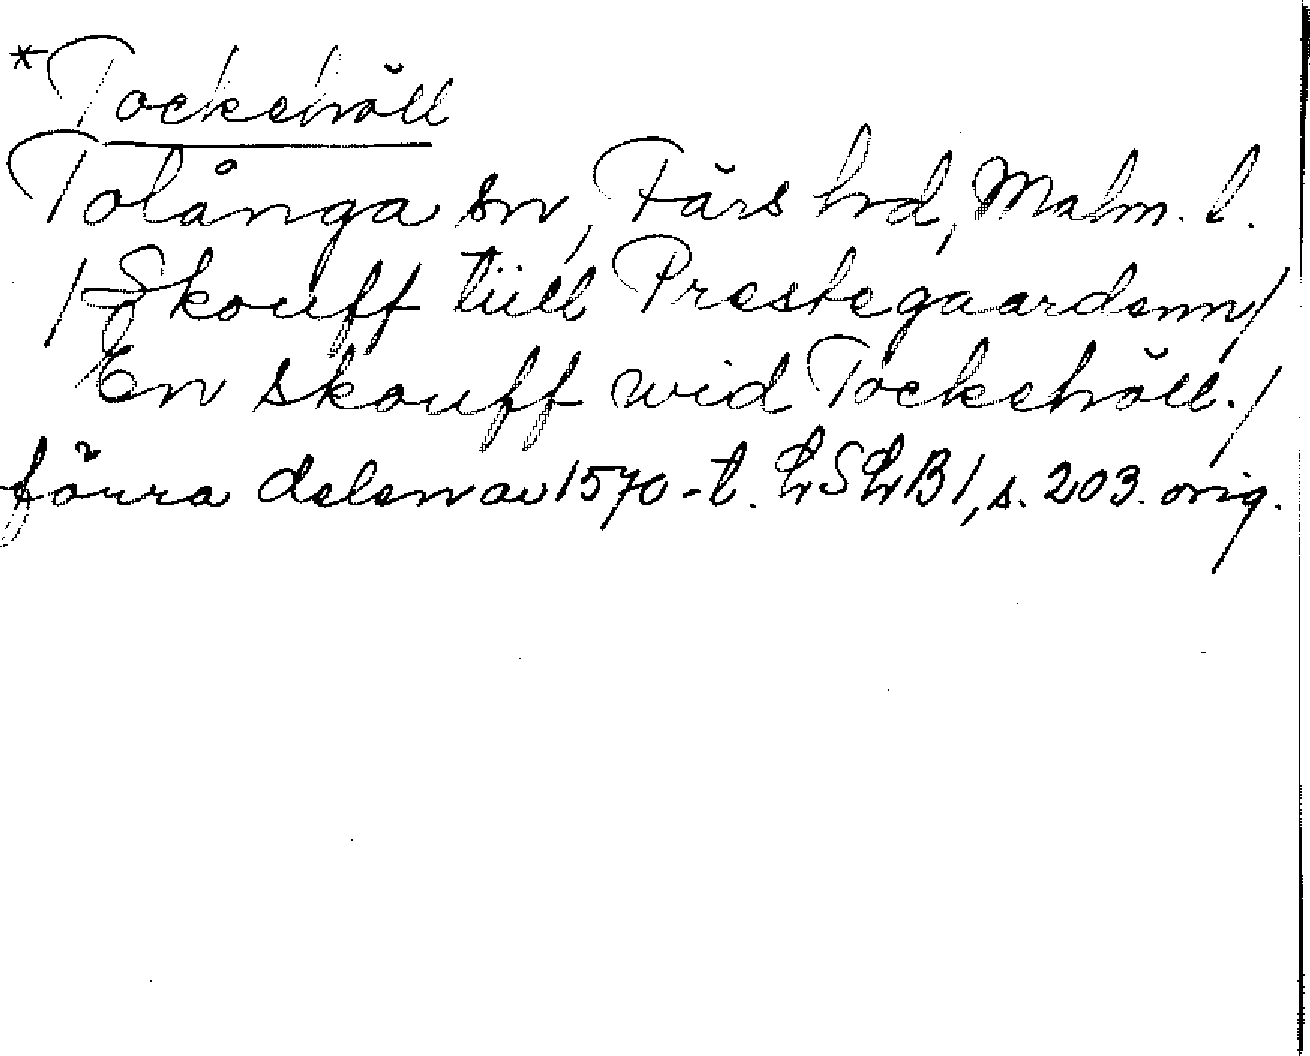 *Tockehöll
Tolånga sn, Färs hd, Malm. l.
/Skouff tiill Prestegaardenn/
En skouff wid Tockehöll./
förra delen av 1570-t. LSLB1, s. 203. orig.